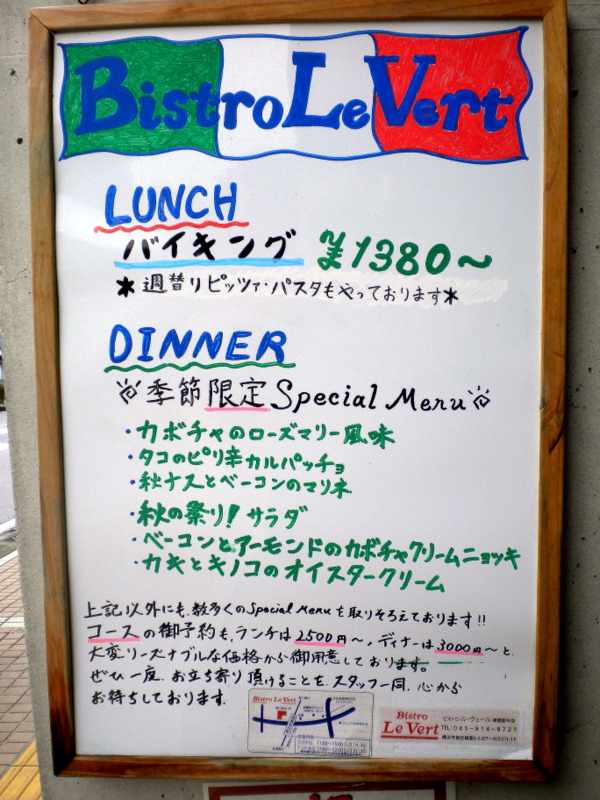 Bistro Le Vert
LUNCH
バイキング ¥1380～
＊週替りピッツァ・パスタもやっております＊
DINNER
季節限定 Special Menu
・カボチャのローズマリー風味
・タコのピリ辛カルパッチョ
・秋ナスとベーコンのマリネ
・秋の祭り！サラダ
・ベーコンとアーモンドのカボチャクリームニョッキ
・カキとキノコのオイスタークリーム
上記以外にも、数多くのSpecial Menuを取りそろえております!!
コースの御予約も、ランチは2500円～、ディナーは3000円～と、
大変リーズナブルな価格から御用意しております。
ぜひ一度、お立ち寄り頂けることを、スタッフ一同、心から
お待ちしております。
Bistro Le Vert
Bistro
Le Vert